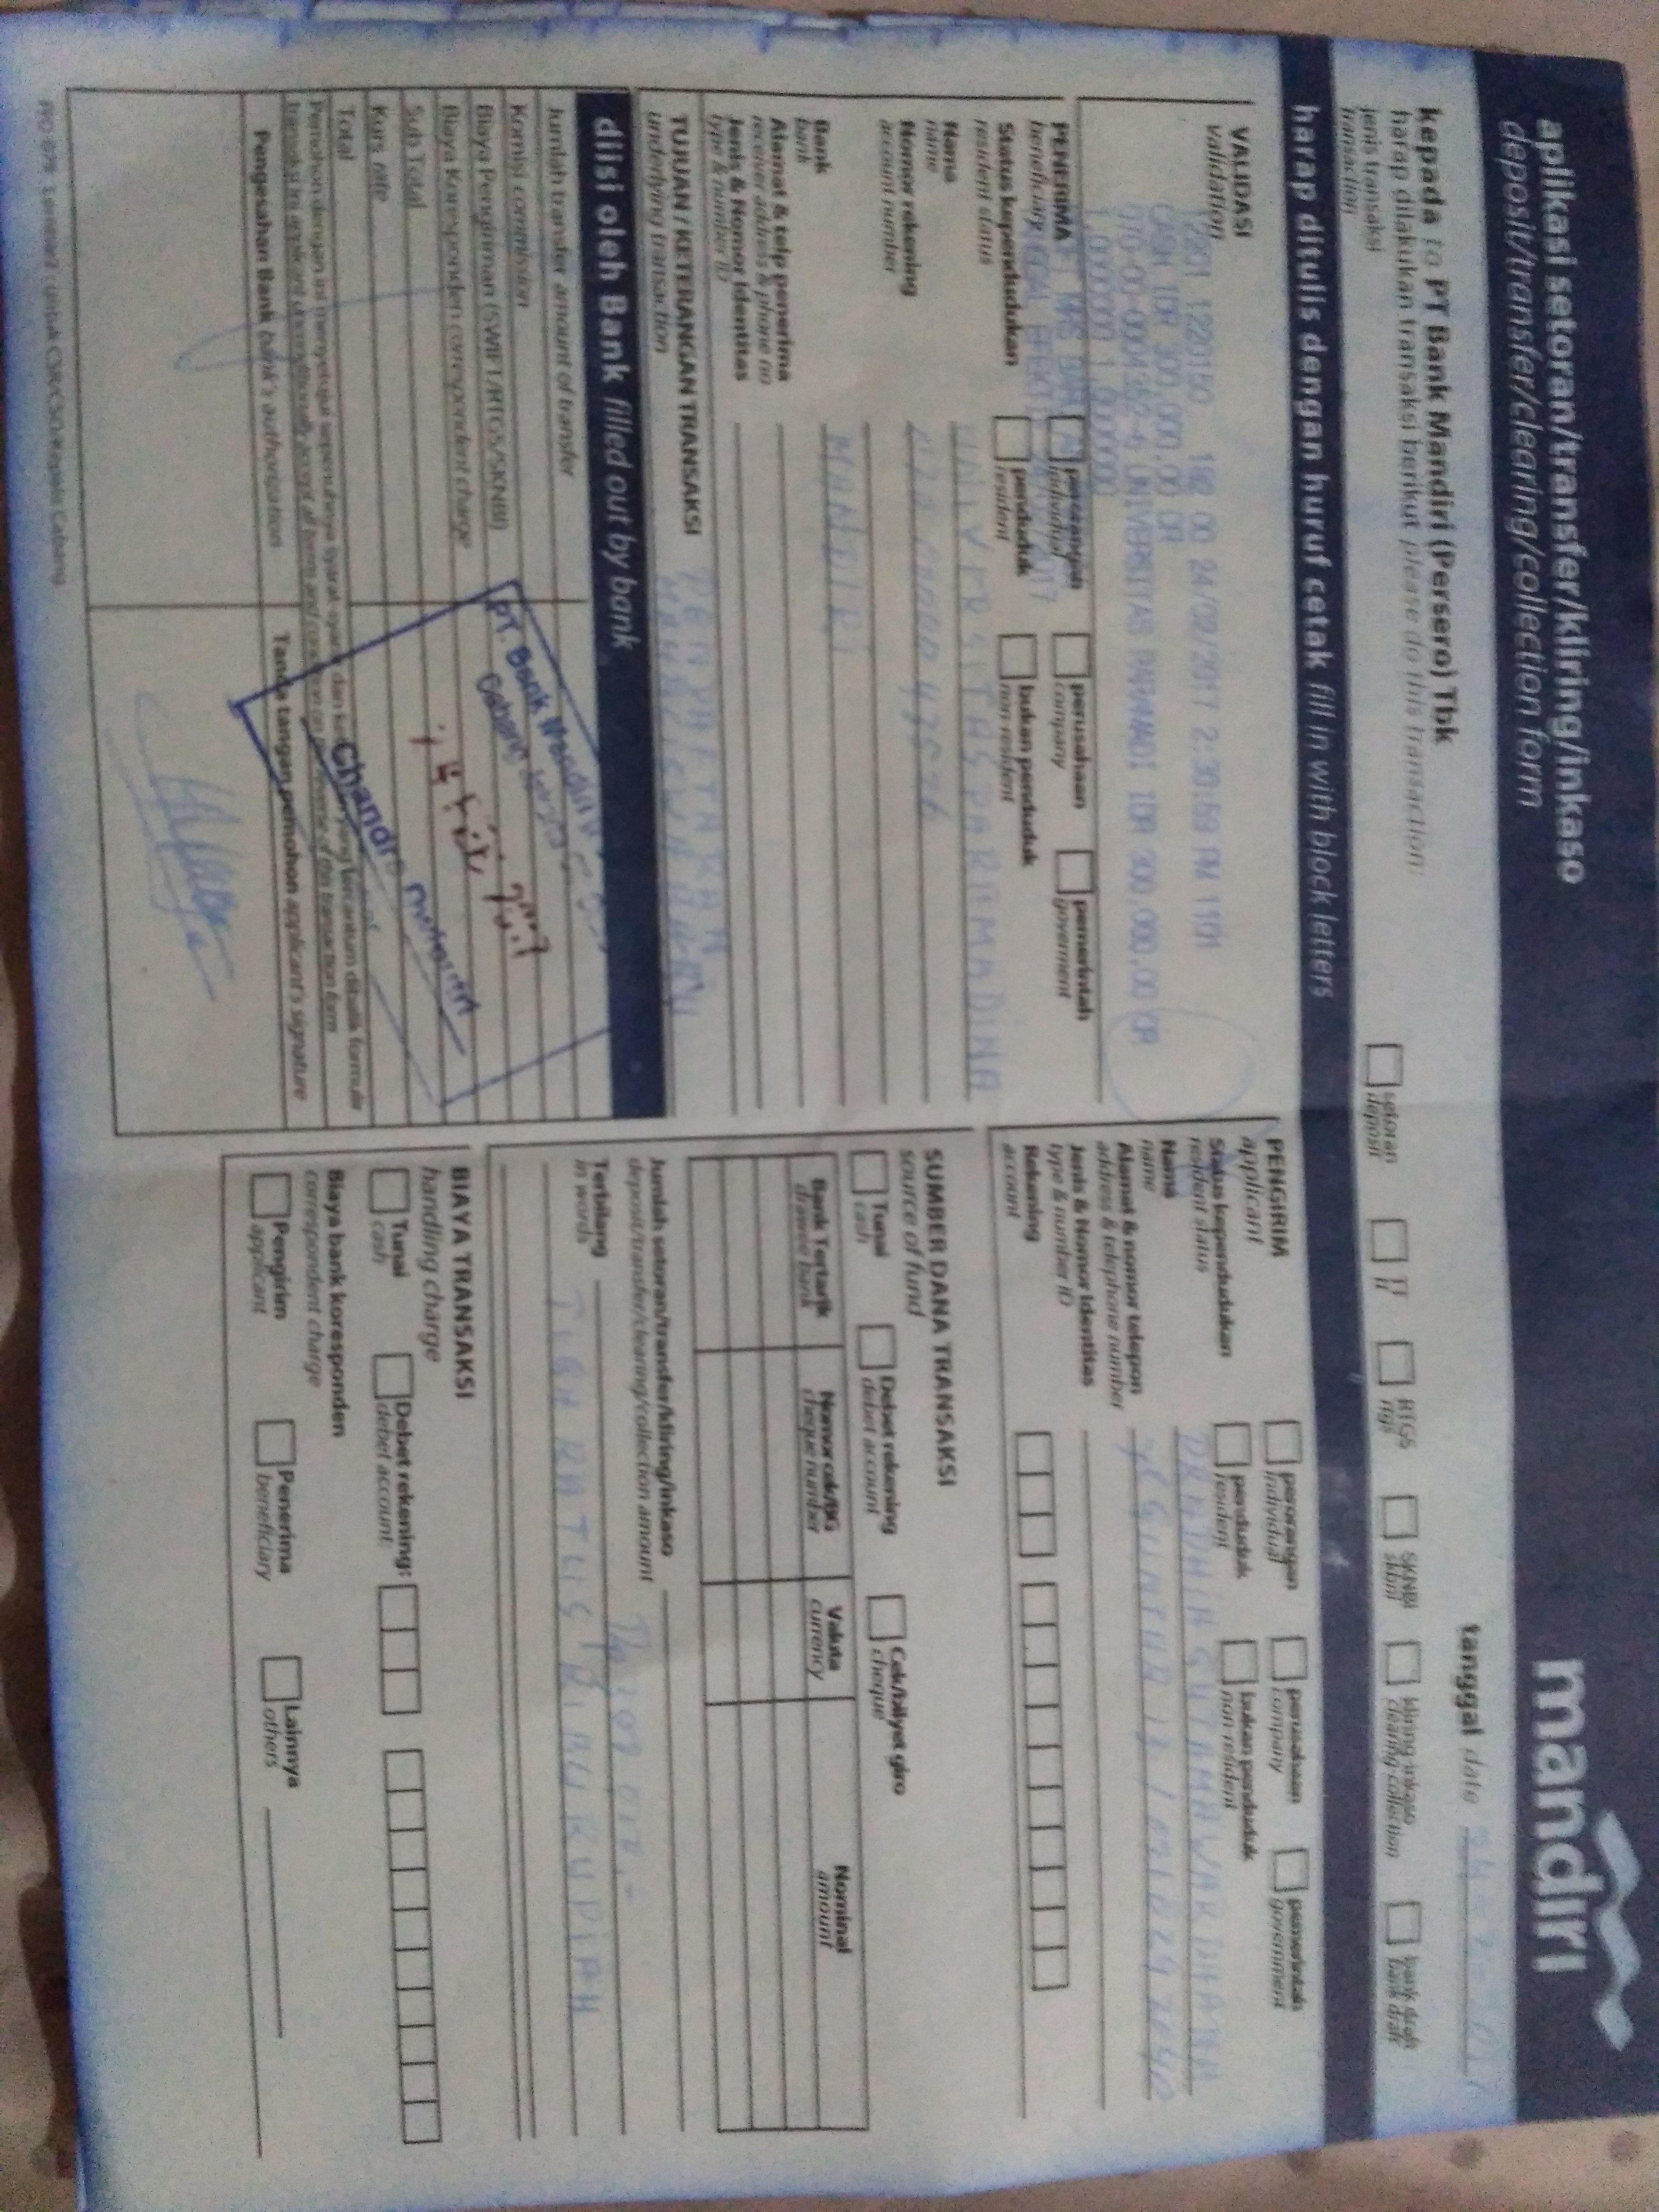 aplikasi setoran/transfer/kliring/inkaso
deposit/transfer/clearing/collection form
mandiri
kepada to PT Bank Mandiri (Persero) Tbk
harap dilakukan transaksi berikut please do this transaction:
tanggal date
jenis transaksi
transaction
setoran
deposit
TT
tt
RTGS
rtgs
SKNBI
skbni
kliring inkaso
clearing collection
bank draft
bank draft
harap ditulis dengan huruf cetak fill in with block letters
VALIDASI
validation
12201 1220150 182 00 24/02/2017 2:30:59 AM 1101
CASH IDR 300,000.00 DR
070-00-0004362-6 UNIVERSITAS PARAMADI IDR 300,000.00 CR
1.0000000 1.0000000
PENERIMA
beneficiary
perorangan
individual
perusahaan
company
pemerintah
government
Status kependudukan
resident status
penduduk
resident
bukan penduduk
non resident
Nama
name
UNIVERSITAS PARAMADINA
Nomor rekening
account number
Bank
bank
MANDIRI
Alamat & telp penerima
receiver address & phone no
Jenis & Nomor Identitas
type & number ID
TUJUAN / KETERANGAN TRANSAKSI
underlying transaction
PENDAFTARAN
diisi oleh Bank filled out by bank
Jumlah transfer amount of transfer
Komisi commission
Biaya Pengiriman (SWIFT/RTGS/SKNBI)
Biaya Koresponden correspondent charge
Sub Total
Kurs rate
Total
Pemohon dengan ini menyetujui sepenuhnya syarat-syarat dan yang tercantum dibalik formulir
transaksi ini applicant unconditionally accept all terms and on reverse of this transaction form
Pengesahan Bank bank's authorization
Tanda tangan pemohon applicant's signature
PT. Bank Mandiri
Cabang
Chandra
PENGIRIM
applicant
perorangan
individual
perusahaan
company
pemerintah
government
Status kependudukan
resident status
penduduk
resident
bukan penduduk
non resident
Nama
name
Alamat & nomor telepon
address & telephone number
Jenis & Nomor Identitas
type & number ID
Rekening
account
SUMBER DANA TRANSAKSI
source of fund
Tunai
cash
Debet rekening
debet account
Cek/bilyet giro
cheque
Bank Tertarik
drawee bank
Nomor cek/BG
cheque number
Valuta
currency
Nominal
amount
Jumlah setoran/transfer/kliring/inkaso
deposit/transfer/clearing/collection amount
Rp 300.000,-
Terbilang
in words
TIGA RATUS RIBU RUPIAH
BIAYA TRANSAKSI
handling charge
Tunai
cash
Debet rekening:
debet account:
Biaya bank koresponden
correspondent charge
Pengirim
applicant
Penerima
beneficiary
Lainnya
others